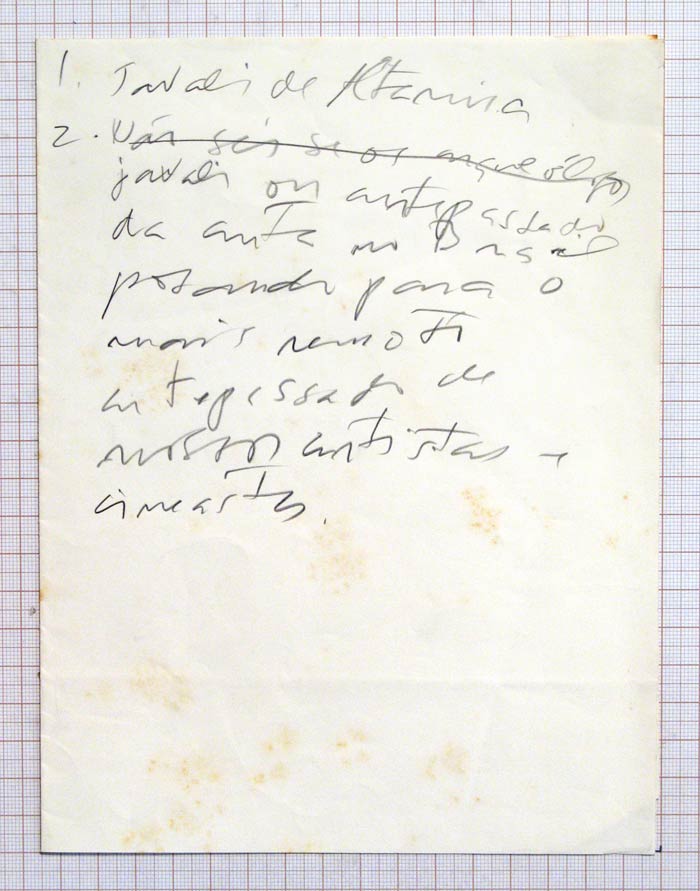 1. Javali de Altamira
2. Não sei se os arqueólogos
javali ou antepassado
da anta no Brasil
posando para o
mais remoto
antepassado de
nossos artistas e
cineastas.